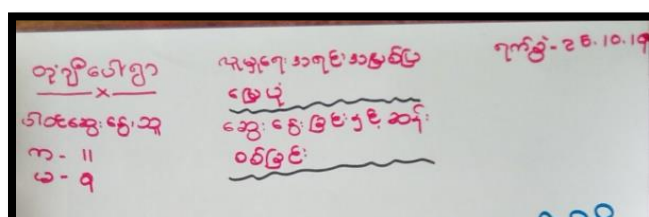 တုံချီပေါ်ရွာ
x
ပါဝင်ဆွေးနွေးသူ
ကာ - ။
မ - ၅
လူမှုရေးအရင်းအမြစ်ပြ
မြေပုံ
ဆွေးနွေးခြင်းနှင့်ဆန်း
စစ်ခြင်း
ရက်စွဲ - 25.10.19